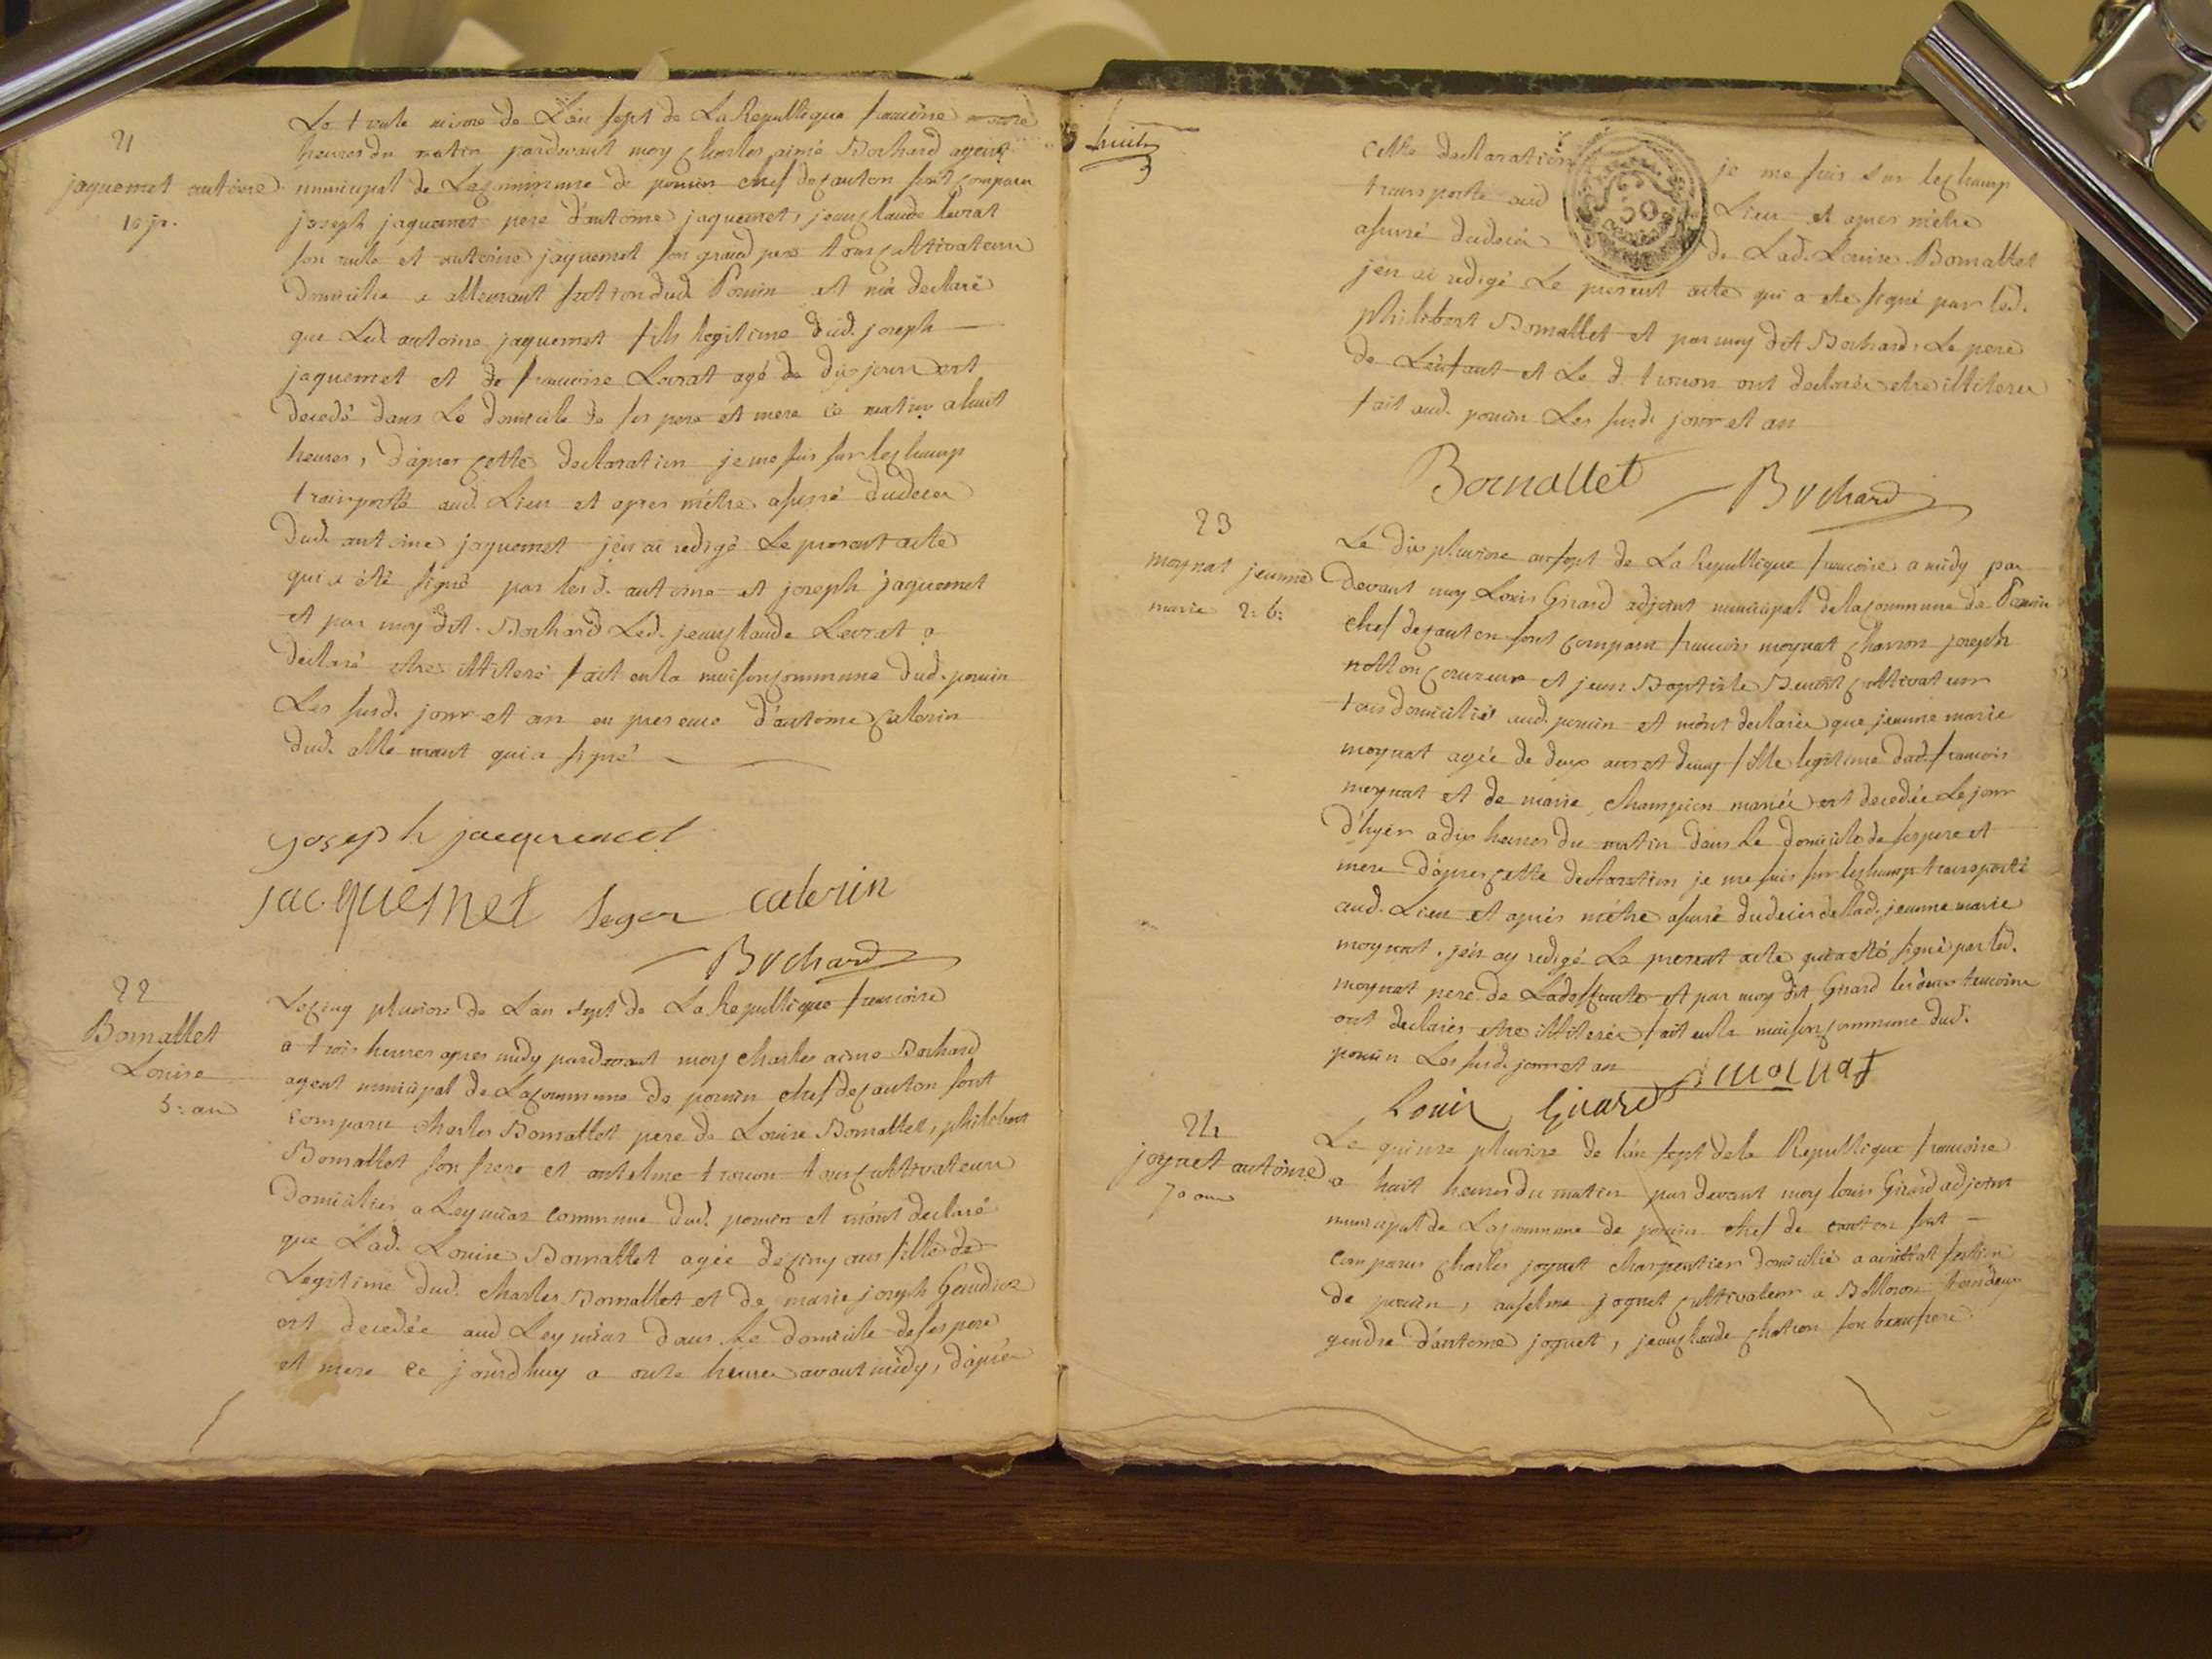 21
jaquemet antoine
10 jr.
Le trente nivose de L'an sept de La Republique francoise onze
heures du matin pardevant moy charles aimé Bochard agent
municipal de Lacommune de poncin chef decanton sont comparu
joseph jaquemet pere d'antoine jaquemet, jeanclaude Levrat
son oncle et antoine jaquemet son grand pere tous cultivateurs
domiciliés a allemant section dud. Poncin et m'a declaré
que Led. antoine jaquemet fils legitime dud. joseph
jaquemet et de francoise Levrat agé de dix jours est
decedé dans Le domicile de ses pere et mere ce matin a huit
heures, d'apres cette declaration je me suis sur lechamp
transporté aud. Lieu et apres m'etre assuré dudeces
dud. antoine jaquemet j'en ai redigé Le present acte
qui a été signé par lesd. antoine et joseph jaquemet
et par moy dit. Bochard Led. jeanclaude Levrat a
declaré etre illiteré fait en la maison commune dud. poncin
Les susd. jour et an en presence d'antoine calerin
dud. allemant qui a signé
joseph jacquemet
jacquemet calerin
Bochard
22
Bornallet
Louise
5: ans
Lecinq pluviose de L'an sept de La Republique francoise
a trois heures apres midy pardevant moy charles aimé Bochard
agent municipal de Lacommune de poncin chef decanton sont
comparu charles Bornallet pere de Louise Bornallet, philibert
Bornallet son frere et antelme tous cultivateurs
domiciliés a Leymiat commune dud. poncin et m'ont declaré
que Lad. Louise Bornallet agée de cinq ans fille de
Legitime dud. charles Bornallet et de marie joseph
est decedée aud Leymiat dans Le domicile de ses pere
et mere ce jourd'huy a onze heures avant midy, d'apres
huit
cette declaration je me suis sur lechamp
transporté aud Lieu et apres m'etre
assuré dudeces de Lad. Louise Bornallet
j'en ai redigé Le present acte qui a été signé par led.
philibert Bornallet et par moy dit Bochard, Le pere
de L'enfant et Le d. ont declarés etre illiterés
fait aud. poncin Les susd. jour et an
Bornallet Bochard
23
moynat jeanne
marie 2: 6:
Le dix pluviose an sept de La Republique francoise a midy par
devant moy Louis Girard adjoint municipal delacommune de Poncin
chef decanton sont comparu francois moynat charron joseph
et jean Baptiste Benoit cultivateur
tous domiciliés aud. poncin et m'ont declarés que jeanne marie
moynat agée de deux ans et demy fille legitime dud. francois
moynat et de marie champion mariés est decedée Le jour
d'hyer a dix heures du matin dans Le domicile de ses pere et
mere d'apres cette declaration je me suis sur lechamp transporté
aud. Lieu et après m'etre assuré dudeces de lad. jeanne marie
moynat, j'en ay redigé Le present acte qui a été signé par led.
moynat pere de Ladeffunte et par moy dit Girard les deux temoins
ont declarés etre illiterés fait en la maison commune dud.
poncin Les susd. jour et an
moinat
Louis Girard
24
joguet antoine
70 ans
Le quinze pluviose de l'an sept dela Republique francoise
a huit heures du matin par devant moy louis Girard adjoint
municipal de Lacommune de poncin chef de canton sont
comparus charles joguet charpentier domicilié a avrillat section
de poncin, anselme joguet cultivateur a
gendre d'antoine joguet, jeanclaude chatron son beaufrere